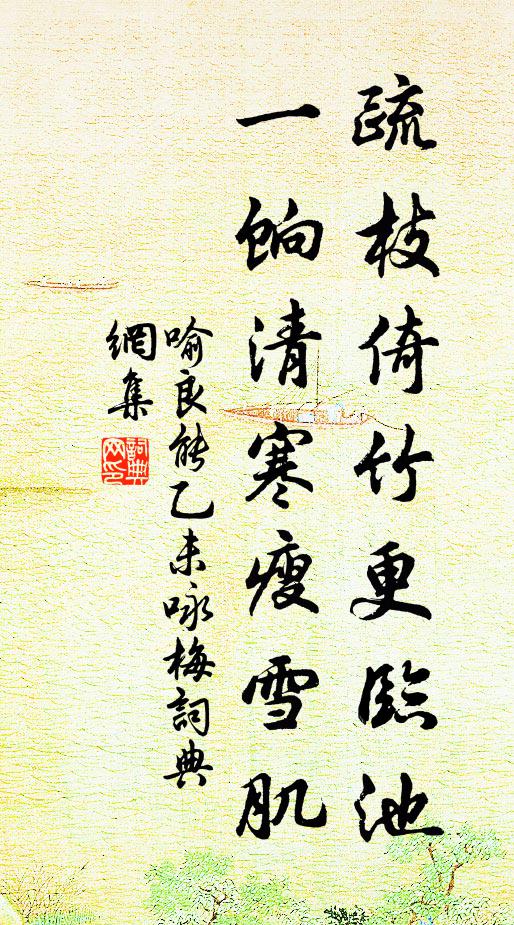 疏枝倚竹更臨池
一餉清寒瘦雪肌
喻良能乙未咏梅詞典
網集
詞典网印